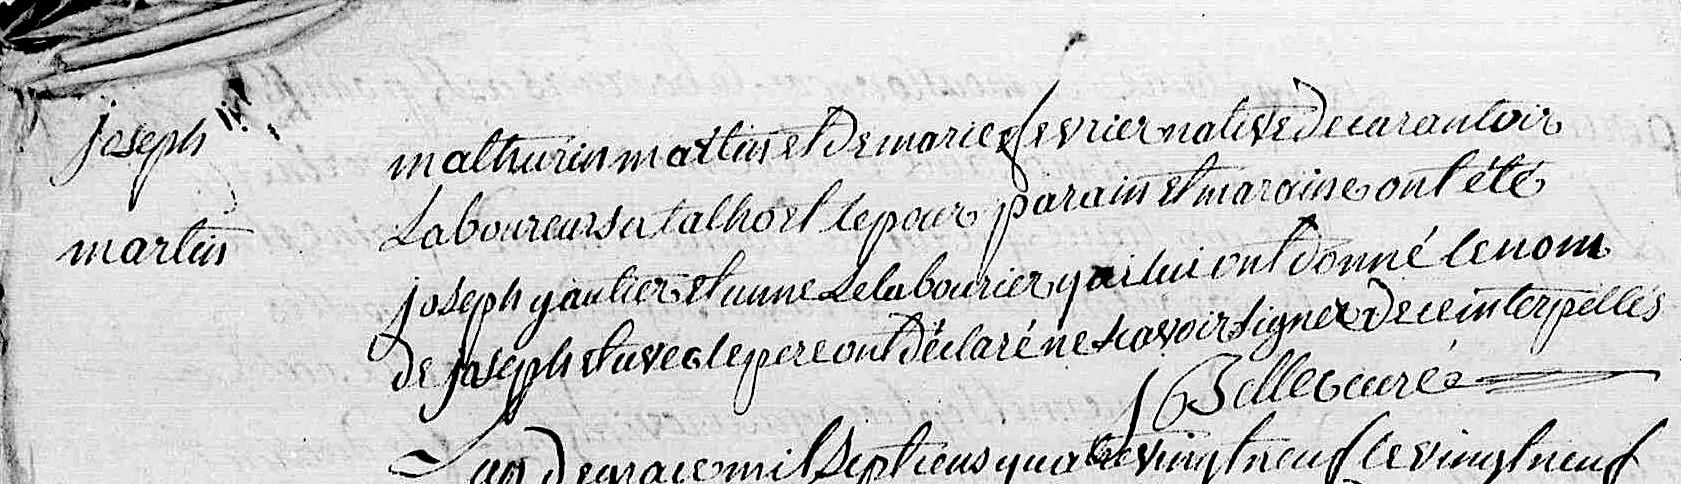 joseph
martin
mathurin martin et de marie fevrier native de carantoir
Laboureurs a talhoet le pour parain et maraine ont été
joseph gautier et anne Lelabourier qui lui ont donné le nom
de joseph et avec le pere ont déclaré ne scavoir signer de ce interpellés
J Bellec curé
L'an de grace mil sept cens quatre vingt neuf le vingt neuf